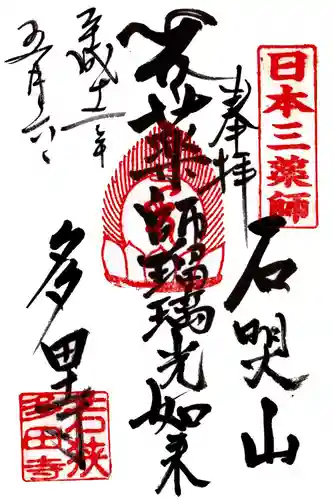 日本三薬師
奉拝
石照山
薬師瑠璃光如来
平成十一年
五月六日
多田寺
若狭
多田寺